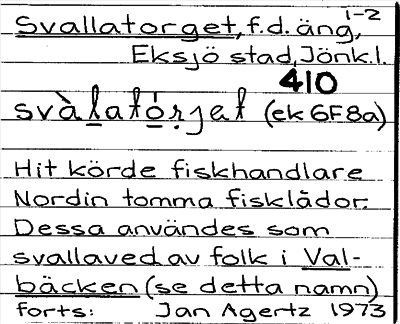 1-2
Svallatorget, f.d. äng,
Eksjö stad, Jönk.l.
410
svàlatórjet (ek 6F8a)
Hit körde fiskhandlare
Nordin tomma fisklådor.
Dessa användes som
svallaved av folk i Val-
bäcken (se detta namn)
forts: Jan Agertz 1973